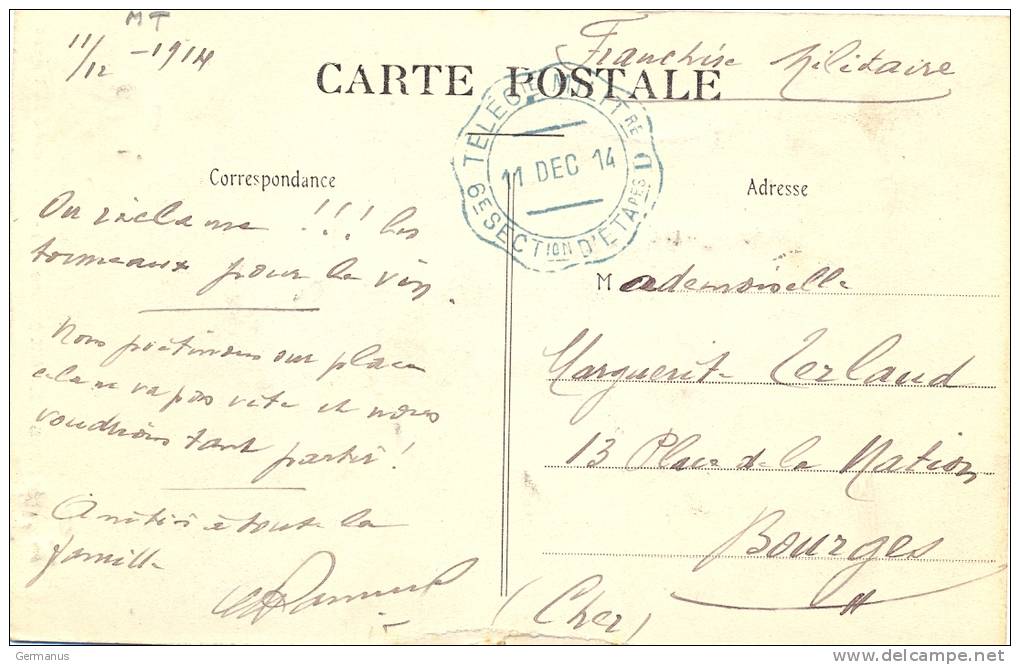 MT
11/12 -1914
Franchise Militaire
CARTE POSTALE
TELEGIE MILITRE D
11 DEC 14
6E SECTION D'ETAPES
Correspondance
Adresse
On réclame !!! les
tonneaux pour le vin.
Nous piétinons sur place
cela ne va pas vite et nous
voudrions tant partir!
Amitiés à toute la
famille
Mademoiselle
Marguerite Terlaud
13 Place de la Nation
Bourges
(Cher)
Germanus
www.delcampe.net